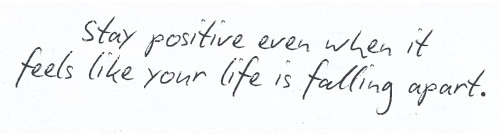 Stay positive even when it
feels like your life is falling apart.